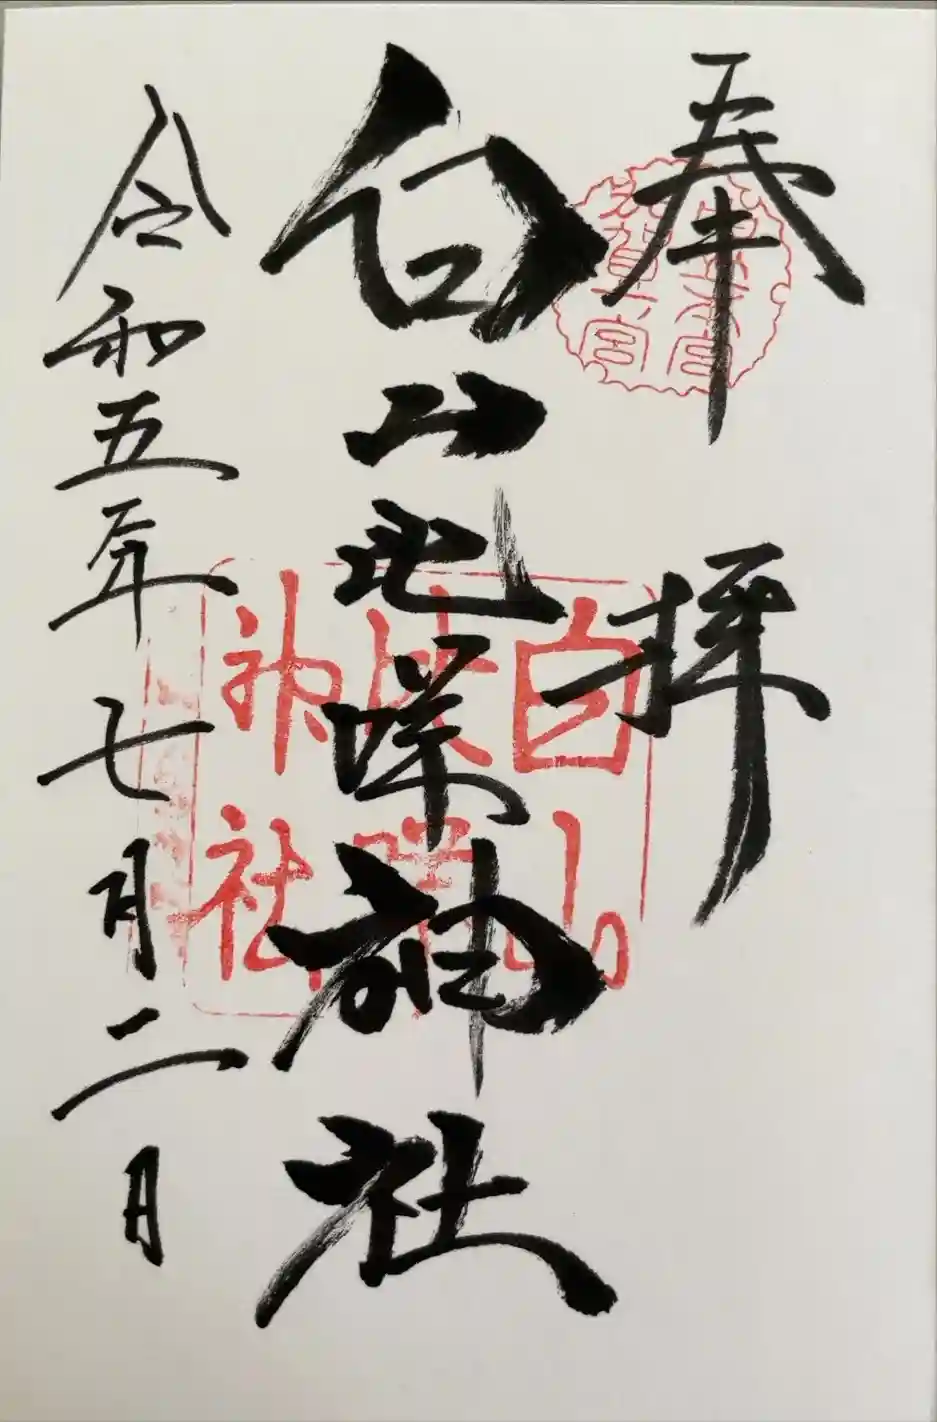 奉拝
白山比咩神社
令和五年七月二日
加賀一宮
白山
比咩
神社